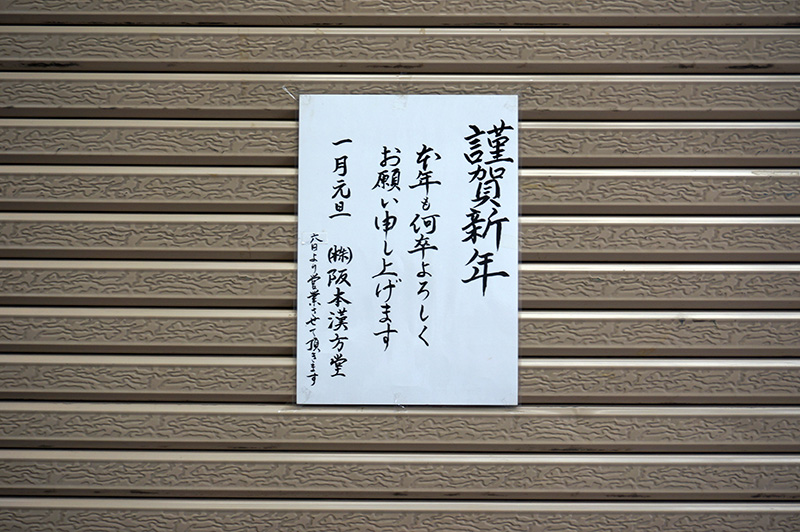 謹賀新年
本年も何卒よろしく
お願い申し上げます
一月元旦
㈱阪本漢方堂
六日より営業させて頂きます